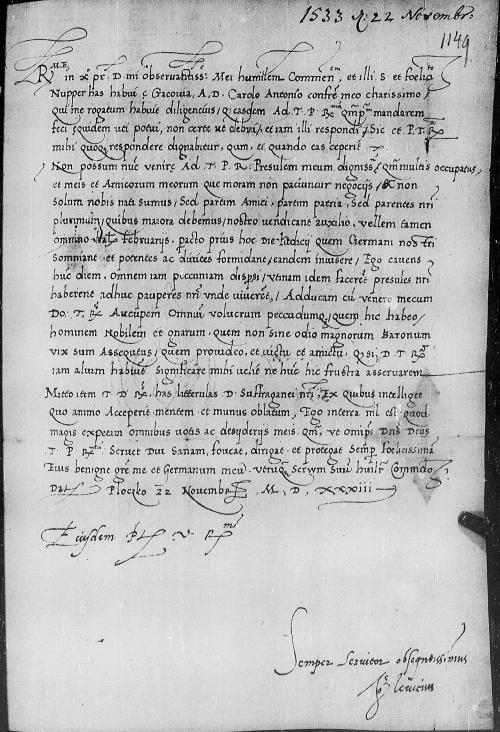 1533 22 Novembr:
1149
R in pr. D. mi observantiss: Mei humilem Commen, et illi S. et foelic
Nupper has habui Cracovia, A. D. Carolo Antonio confre meo charissimo
qui me rogatum habuit diligencius, easdem Ad. T. P. mandarem
feci equidem uti potui, non certe debui, etiam illi respondi, Sic et P. T.
mihi quoq respondere dignabitur, qum, et quando eas ceperit
Non possum nuc venire Ad T. P. R. Presulem meum digniss, multis occupatus
et meis et Amicorum meorum que moram non paciuntur negocijs, non
solum nobis nati sumus, Sed partim Amici, partim patria, Sed parentes nri
plurimum, quibus maiora debemus, nostro vendicant auxilio, vellem tamen
omnino Februarijs, pacto prius hoc die quem Germani nos
somniant et potentes ac divites formidant, eandem invisere, Ego cavens
huc diem, Omnem iam pecuniam dispsi, utinam idem facerent presules nri
haberent adhuc pauperes nri unde viverent, Adducam cu venero mecum
Do. T. R. Aucupem Omniu volucrum peccudumq, quem hic habeo,
hominem Nobilem et gnarum, quem non sine odio magnorum Baronum
vix sum Assequutus, quem provideo, et victu et amictu, qsi D. T. R.
iam alium habuit significare mihi velit ne huc hic frustra asservarem
Mitto item T. D. R. has litterulas D. Suffraganei nri, Ex quibus intelliget
quo animo Acceperit mentem et munus oblatum, Ego interea nil est quod
magis expetam omnibus votis ac desyderijs meis. ut omips Dns Deus
T. P. R. Servet Diu Sanam, foveat, dirigat et protegat Semp foelicissima
Cuius benigne gre me et Germanum meu utruq Servum Suu humilr Commdo
Dat Ploczko 22 Novembr M. D. XXXIII
Eiusdem V. R.
Semper Servitor obsequtissimus
Levicius